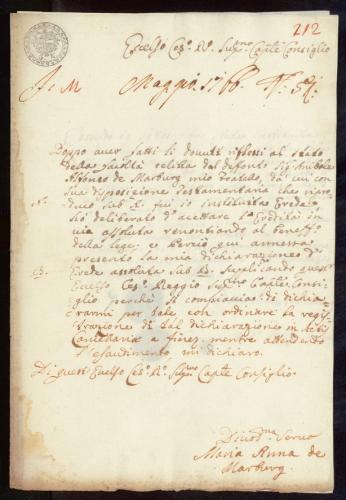 212
Eccelso Ces.º R.º Sup.mo Cap.le Consiglio
Maggio 1766. N.º
Doppo aver fatti li dovuti riflessi al stato
della facoltà relitta dal defonto Sig.r Annibale
Alfonso de Marburg mio Fratello, da cui con
sua disposizione testamentaria che ripro-
A. duco sub A. fui io instituita Erede
hò deliberato d'accettare l'Eredità in
via assoluta renontiando al beneffo
della lege; e perciò qui annessa
presento la mia dichiarazione d'
B. Erede assoluta sub B. Suplicando questo
Eccelso Ces.º Reggio Sup.mo Cap.le Consi-
glio perchè si compiaccia di dichia-
rarmi per tale con ordinare la regis-
trazione di tal dichiarazione in Actis
Cancellaria mentre attendendo
l'esaudimento, mi dichiaro.
Di questo Eccelso Ces.º R.º Sup.mo Cap.le Consiglio.
Divot.ma Serva
Maria Anna de
Marburg.